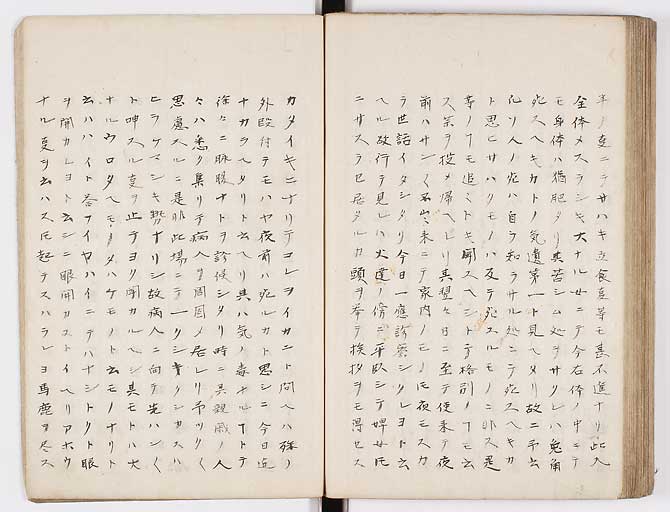 ノ叓ニテサハキ立食等モ甚不進ナリ此人
全体メスラシキ大ナル女ニテ今右体ノ中ニテ
モ身体ハ猶肥タリ其苦シム処ヲサクレハ兎角
死スヘキカトノ気遣第一ト見ヘタリ故ニ予云
凡ソ人ノ死ハ自ラ知ラサル処ニテ死スヘキカ
ト思ヒサハクモノハ及テ死スルモノニ非ス是
等ノヿモ追々トキ聞スヘシトテ格別ノヿモ云
ス薬ヲ投メ帰ヘレリ其翌々日ニ至テ使来テ夜
前ハサン〱不出来ニテ家内ノモノ𪜈夜モスカ
ラ世話イタシタリ今日一應診察シクレヨト云
ヘル故行テ見レハ傍ニ平臥シテ婢女𪜈
ニサスラセ居タルカ頭ヲ挙テ挨拶ヲモ得セス
カタイキニナリテコレヲイカニト問ヘハ殊ノ
外段付テモハヤ夜前ハ死ルカト思シニ今日迄
ナカラヘタリト云ヘリ其ハ気ノ毒ナルヿトテ
徐々ニ脉腹ナトヲ診候シタリ時ニ其親戚ノ人
々ハ悉ク集リテ病人ノ周囲メ居レリ予ツク〱
思慮スルニ是非此場ニテ一クシキクシカスハ
ヒラケマシキ勢ナリシ故病人ニ向テ先ハン〱
ト呻スル叓ヲ止テヨク聞カルヘシ其モトハ大
ナルウロタヘモノタハケモノト云モノナリト
云ハハイト答フイヤハイニテハナシトクト眼
ヲ開カレヨト云シニ眼開カストイヘリアホウ
ナル叓ヲ云ハス𪜈起テスハラレヨ馬鹿ヲ尽ス